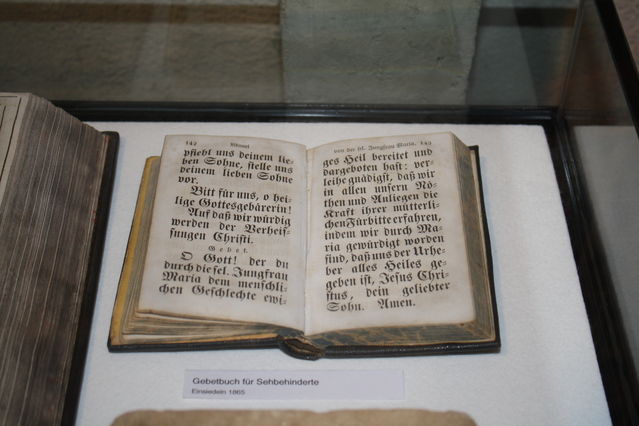 142
pfiehl uns deinem lie-
ben Sohne, stelle uns
deinem lieben Sohne
vor.
Bitt für uns, o hei-
lige Gottesgebärerin!
Auf daß wir würdig
werden der Verheis-
sungen Christi.
Gebet.
O Gott! der du
durch die sel. Jungfrau
Maria dem menschli-
chen Geschlechte ewi-
von der sel. Jungfrau Maria. 143
ges Heil bereitet und
dargeboten hast: ver-
leihe gnädigst, daß wir
in allen unsern Nö-
then und Anliegen die
Kraft ihrer mütterli-
chen Fürbitte erfahren,
indem wir durch Ma-
ria gewürdigt worden
sind, daß uns der Urhe-
ber alles Heiles ge-
geben ist, Jesus Chri-
stus, dein geliebter
Sohn. Amen.
Gebetbuch für Sehbehinderte
Einsiedeln 1865